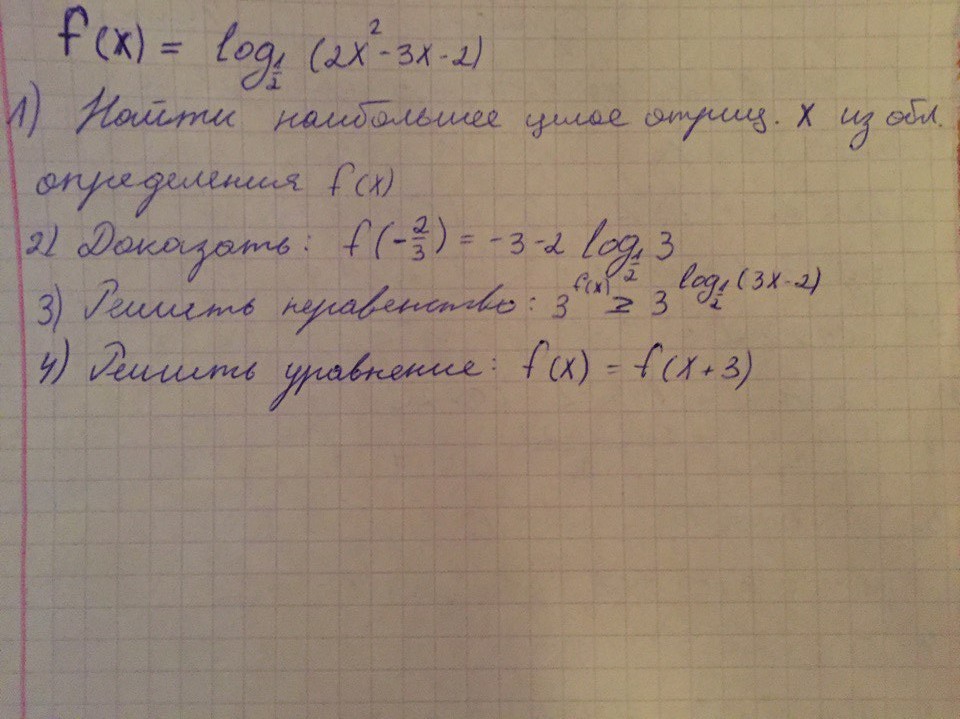 f(x) = log_{1/2} (2x² - 3x - 2)
1) Найти наибольшее целое отриц. x из обл.
определения f(x)
2) Доказать: f(-2/3) = -3 - 2 log_{1/2} 3
3) Решить неравенство: 3^{f(x)} ≥ 3^{log_{1/2} (3x - 2)}
4) Решить уравнение: f(x) = f(x + 3)